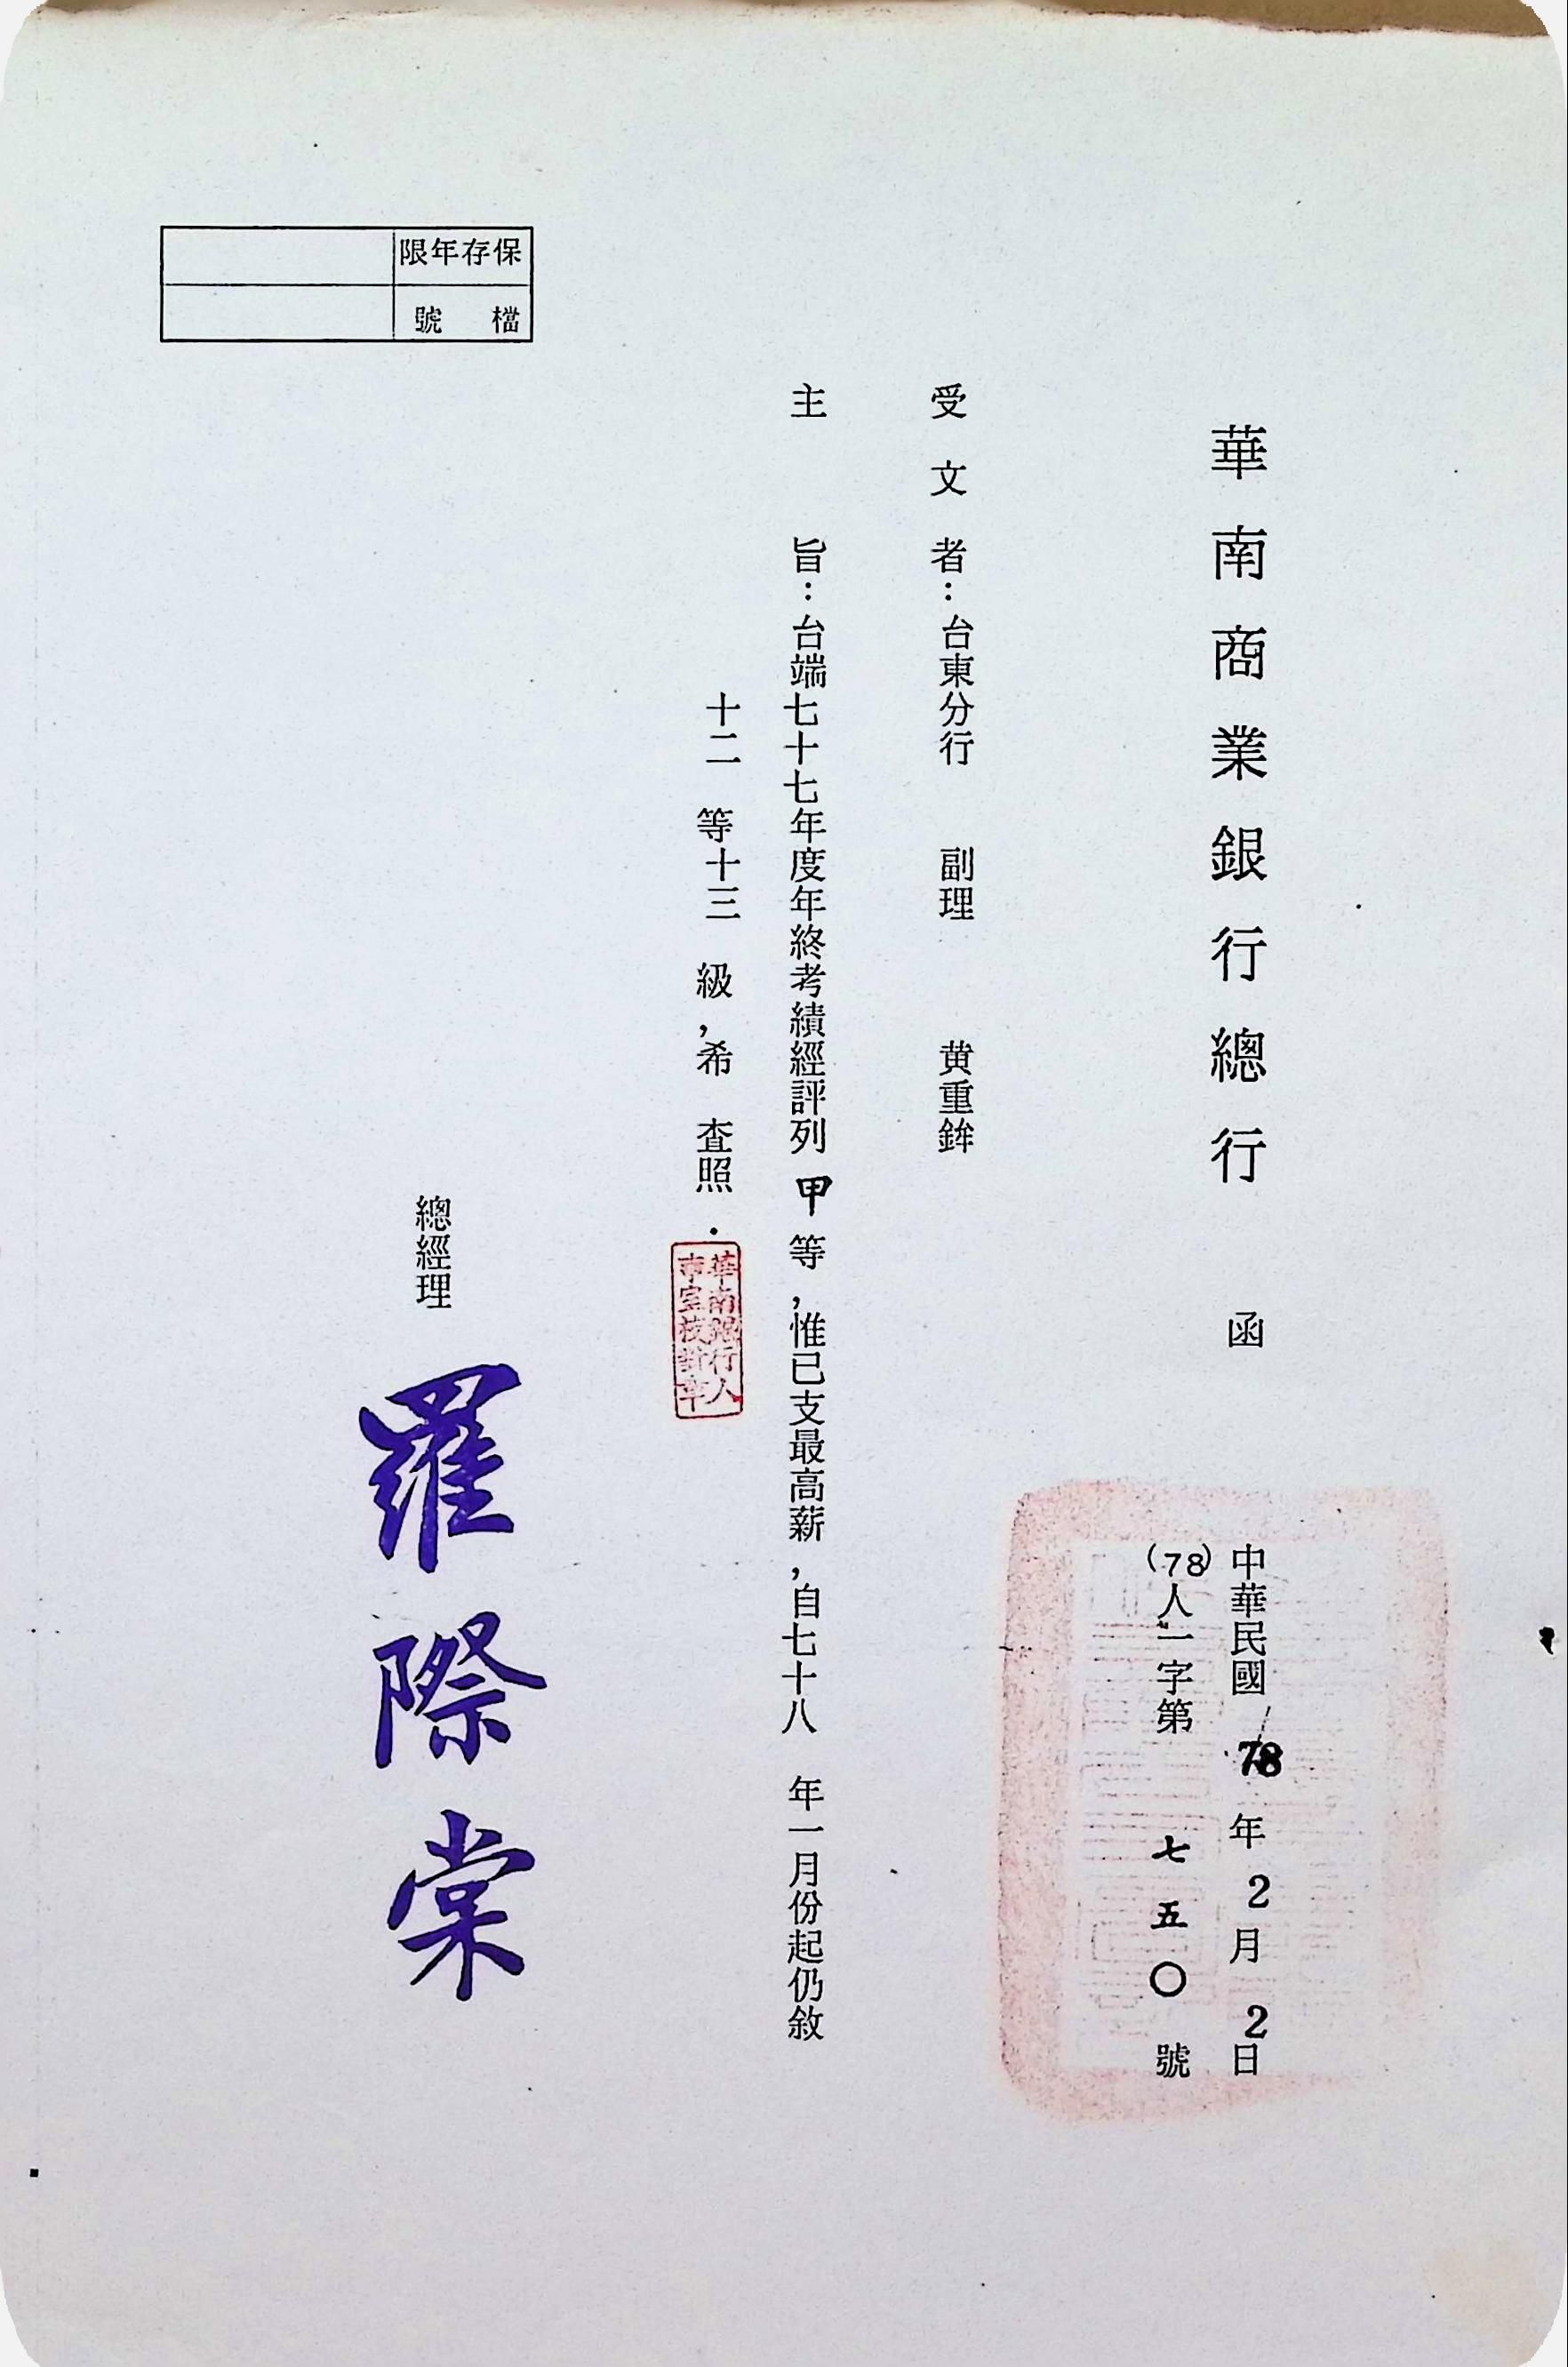 華南商業銀行總行 函
中華民國 78 年 2 月 2 日
(78)人一字第 七五〇 號
受文者：台東分行 副理 黄重鉾
主 旨：台端七十七年度年終考績經評列 甲 等，惟已支最高薪，自七十八 年一月份起仍敘
十二 等十三 級，希 查照．
華南銀行人
事室核對章
總經理 羅際棠
保存年限
檔 號